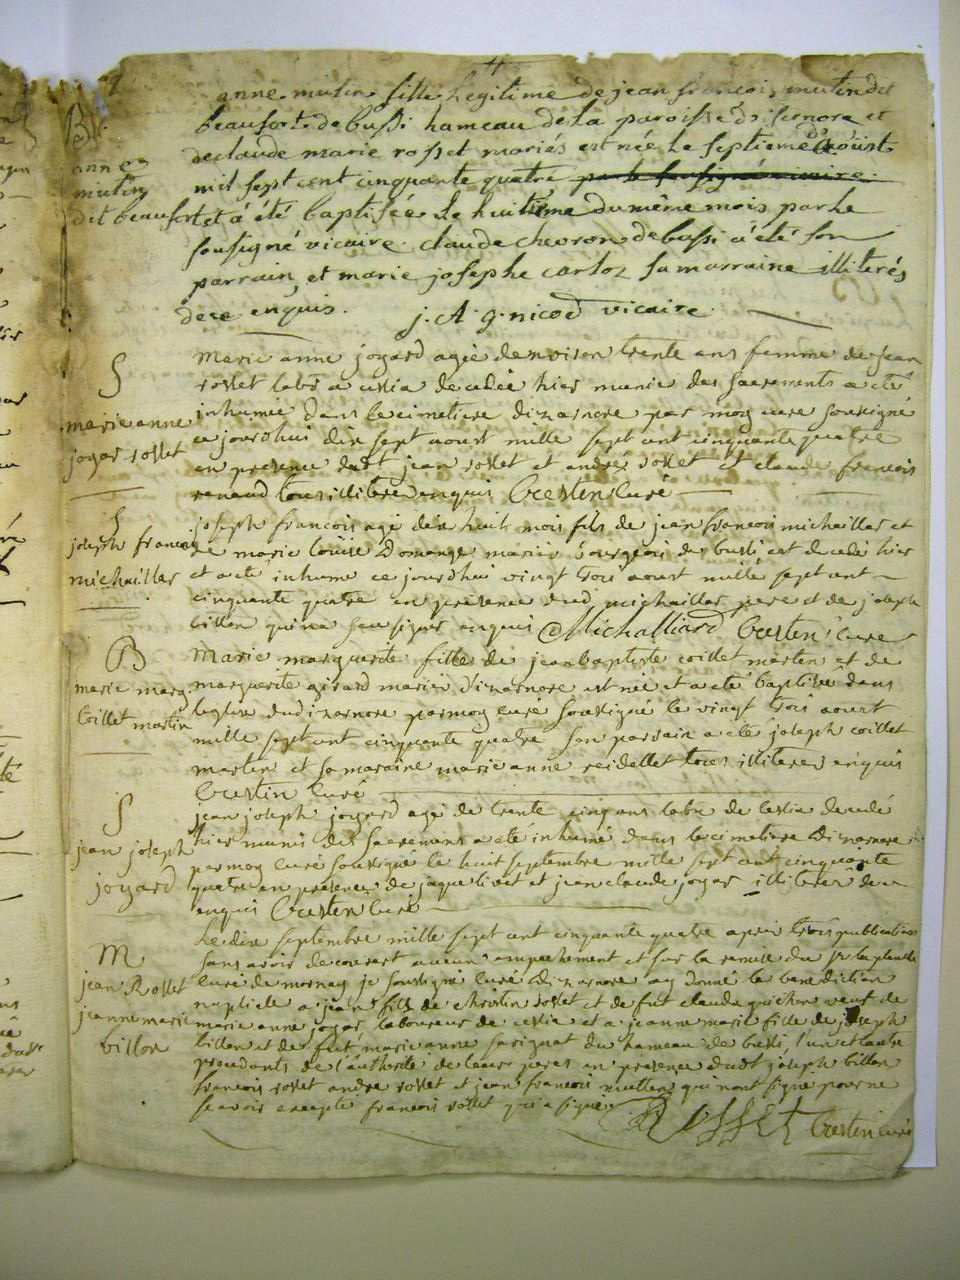 B
anne
mutin
dit beaufort
anne mutin fille legitime de jean francois mutin dit
beaufort de bussi hameau de la paroisse d'isernore et
de claude marie rosset mariés est née le septieme aoust
mil sept cent cinquante quatre par le sousigné vicaire
et a été baptisée le huitieme du même mois par le
sousigné vicaire claude chevron de bussi a été son
parrain, et marie josephe carloz sa marraine illiterés
de ce enquis. j. A. g. nicod vicaire
S
marie anne
jogar rosset
Marie anne jogard agée denviron trente ans femme de jean
rosset labr a cessia decedée hier munie des sacrements a eté
inhumée dans le cimetiere dizarnore par moy curé sousigné
ce jourdhui dix sept aoust mille sept cent cinquante quatre
en presence dudt jean rosset et andré rosset et claude francois
renaud tous illiteres enquis Crestin curé
S
joseph francois
michaillar
joseph francois agé dix huit mois fils de jean francois michaillar et
de marie loüise Domange mariés bourgeois de bussi est decedé hier
et a eté inhumé ce jourdhui vingt trois aoust mille sept cent
cinquante quatre en presence dud michaillar pere et de joseph
billon qui na seu signer enquis Michalliard Crestin curé
B
marie marg
coillet martin
Marie marguerite fille de jean baptiste coillet martin et de
marguerite girard mariés dizarnore est née et a eté baptisée dans
leglise dudizarnore par moy curé sousigné le vingt trois aoust
mille sept cent cinquante quatre son parrain a eté joseph coillet
martin et sa maraine marie anne reidellet tous illiteres enquis
Crestin curé
S
jean joseph
jogard
jean joseph jogard agé de trente cinq ans labr de cessia decedé
hier munis des sacremens a eté inhumé dans le cimetiere dizarnore
par moy curé sousigné le huit septembre mille sept cent cinquante
quatre en presence de jaque livet et jean claude jogar illiteres de
enquis Crestin curé
M
jean Rosset
jeanne marie
billon
Le dix septembre mille sept cent cinquante quatre apres trois publications
sans avoir decouvert aucun empechement et sur la remise du sr laplante
curé de mornay je sousigné curé dizarnore ay donné la benediction
nuptiale a jean fils de christin rosset et de fut claude guichon veuf de
marie anne jogar laboureur de cessia et a jeanne marie fille de joseph
billon et de fut marie anne savignat du hameau de bussi l'un et lautre
procedants de l'authorité de leurs peres en presence dudt joseph billon
francois rosset andre rosset et jean francois mutin qui nont signé pour ne
scavoir excepté francois rosset qui a signé Rosset Crestin curé